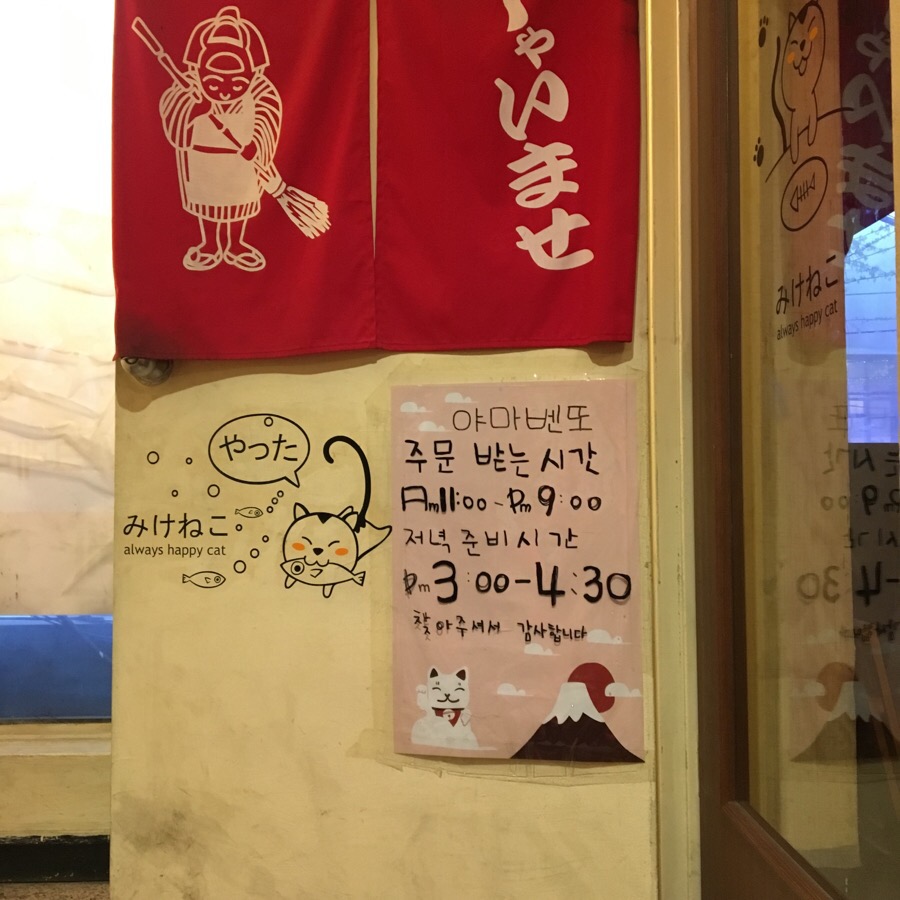 ゃいませ
やった
みけねこ
always happy cat
야마벤또
주문 받는 시간
Am11:00 - Pm9:00
저녁 준비 시간
Pm3:00-4:30
찾아주셔서 감사합니다
みけねこ
always happy cat